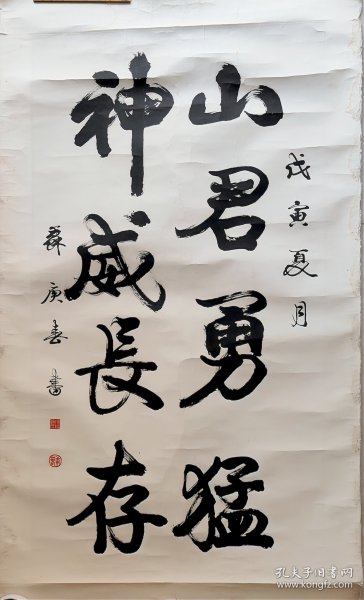 戊寅夏月
山君勇猛
神威長存
蘇庚春書
孔夫子旧书网
www.kongfz.com